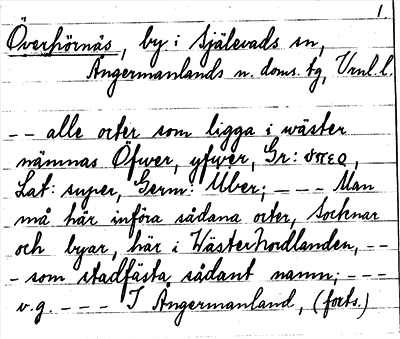 1.
Överhörnäs, by i Själevads sn,
Ångermanlands n. doms. tg, Vrnl. l.
-- alle orter som ligga i wäster
nämnas Öfwer, yfwer, Gr: ὑπεϱ,
Lat: super, Germ: Uber; --- Man
må här införa sådana orter, Socknar
och byar, här i WästerNordlanden, --
- som stadfästa sådant namn; ---
v.g. --- I Ångermanland, (forts.)